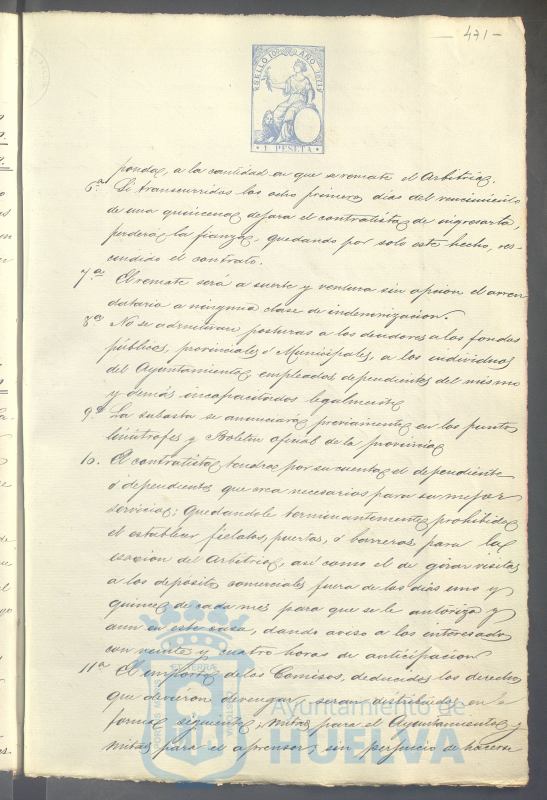 — 471 —
SELLO 10º AÑO 1877
1 PESETA
ponda, a la cantidad en que se remate el Arbitrio.
6.ª Si transcurridos los ocho primeros dias del vencimiento
de una quincena dejara el contratista de ingresarla,
perderá la fianza, quedando por solo este hecho, res-
cindido el contrato.
7.ª El remate será a suerte y ventura sin opcion el arren
datario a ninguna clase de indemnizacion.
8.ª No se admitiran posturas a los deudores a los fondos
públicos, provinciales ó Municipales, a los individuos
del Ayuntamiento, empleados dependientes del mismo
y demás incapacitados legalmente
9.ª La subasta se anunciará previamente en los puntos
limitrofes y Boletin oficial de la provincia
10. El contratista tendrá por su cuenta el dependiente
ó dependientes que crea necesarios para su mejor
servicio; quedandole terminantemente prohibido
el establecer fielatos, puertas, ó barreras para la
exaccion del Arbitrio, asi como el de girar visitas
a los depositos comerciales fuera de los dias uno y
quince de cada mes para que se le autoriza y
aun en este caso, dando aviso a los interesados
con veinte y cuatro horas de anticipacion
11.ª El importe de los Comisos, deducidos los derechos
que devieron devengar, seran distribuidos en la
forma siguiente, mitad para el Ayuntamiento y
mitad para el aprensor, sin perjuicio de hacerse
Ayuntamiento de
HUELVA